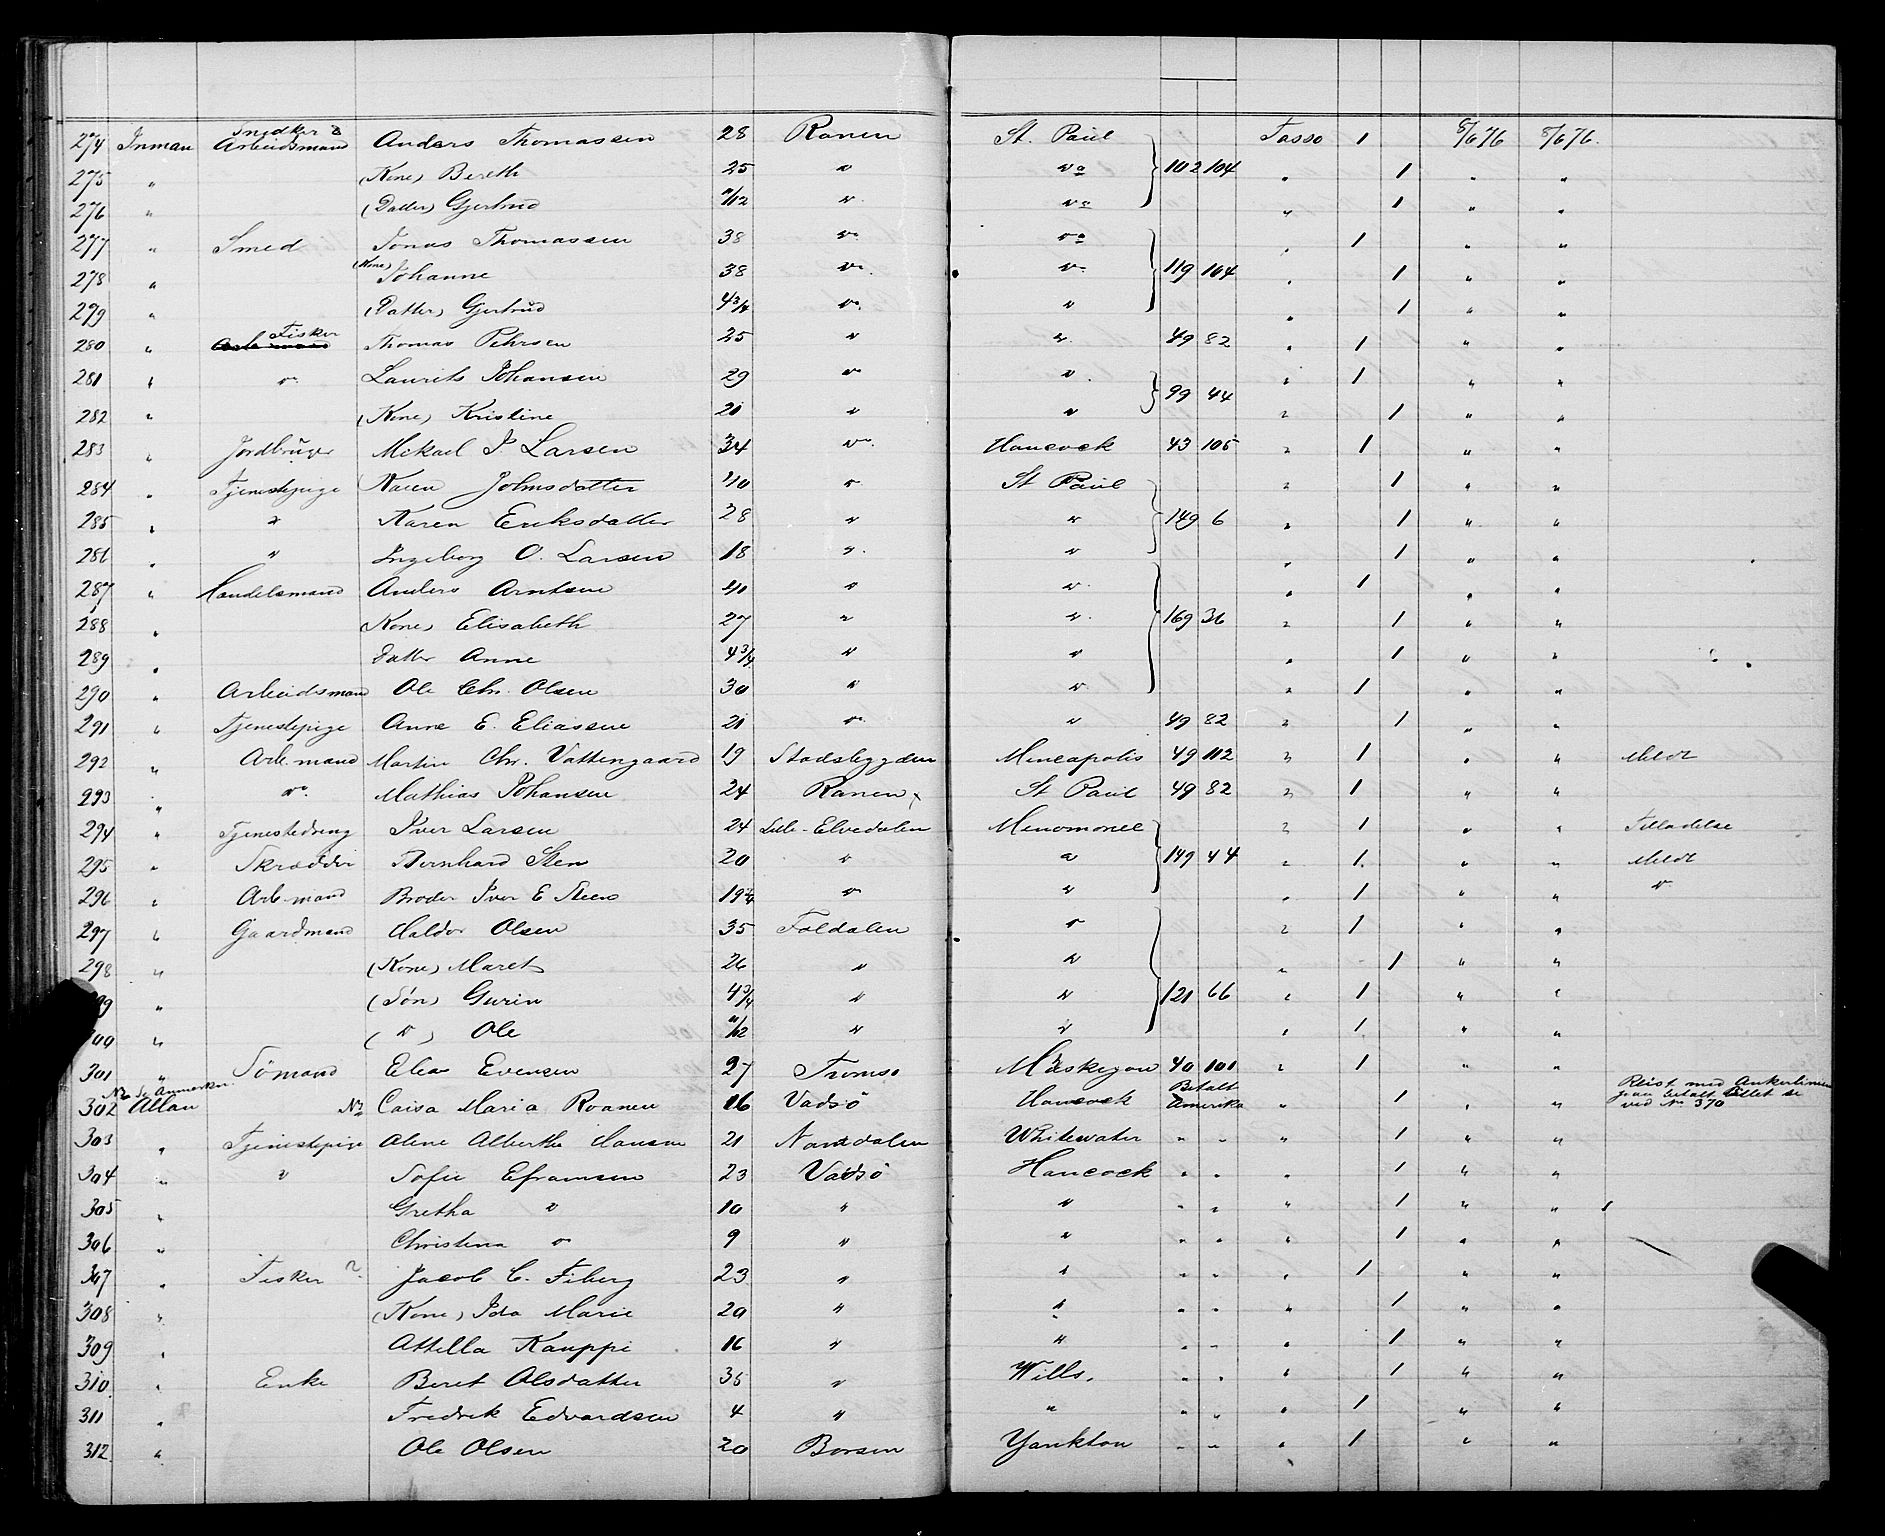 274 Inman Snedker & Arbeidsmand Anders Thomassen 28 Ranen St. Paul Tasso 1 8/6 76 8/6 76.
275 " (Kone) Bereth 25 " do 102 104 " 1 " "
276 " (Datter) Gjertrud /12 " do " 1 " "
277 " Smed Jonas Thomassen 38 " do " 1 " "
278 " (Kone) Johanne 38 " " 119 104 " 1 " "
279 " (Datter) Gjertrud 4 3/4 " " " 1 " "
280 " Fisker Thomas Pehrsen 25 " " 49 82 " 1 " "
281 " " Laurits Johansen 29 " " " 1 " "
282 " (Kone) Kristine 21 " " 99 44 " 1 " "
283 " Jordbruger Mikael J Larsen 34 " Hancock 43 105 " 1 " "
284 " Tjenestepige Karen Johnsdatter 40 " St Paul " 1 " "
285 " " Karen Eriksdatter 28 " " 149 6 " 1 " "
286 " " Ingeborg O. Larsen 18 " " " 1 " "
287 " Handelsmand Anders Arntsen 40 " " " 1 " "
288 " (Kone) Elisabeth 27 " " 169 36 " 1 " "
289 " Datter Anne 4 3/4 " " " 1 " "
290 " Arbeidsmand Ole Chr. Olsen 30 " " " 1 " "
291 " Tjenestepige Anne E. Eliassen 21 " " 49 82 " 1 " "
292 " Arb. mand Martin Chr. Vattengaard 19 Stadsbygden Mineapolis 49 112 " 1 " " Meldt
293 " " Mathias Johansen 24 Ranen St Paul 49 82 " 1 " "
294 " Tjenestedreng Iver Larsen 24 Lille-Elvedalen Menomonee " 1 " " Tilladelse
295 " Skrædder Bernhard Sten 20 " " 149 44 " 1. " " Meldt
296 " Arb. mand Broder Iver E Steen 19 " " " 1 " " "
297 " Gaardmand Haldor Olsen 35 Foldalen " " 1 " "
298 " (Kone) Maret 26 " " " 1 " "
299 " (Søn) Gurin 4 3/4 " " 121 66 " 1 " "
300 " ( " ) Ole 11/12 " " " 1. " "
301 " Sømand Elea Evensen 27 Tromsø Muskegon 40 101 " 1 " "
NB Se Anmærkn.
302 Allan NB Caisa Maria Roanen 16 Vadsø Hancock Betalt Amerika " 1 " " Reist med Ankerlinien paa betalt Billet se ved No 370
303 " Tjenestepige Aline Alberth Hansen 21 Namdalen Whitewater " " " 1 " "
304 " " Sofie Eframsen 23 Vadsø Hancock " " " 1 " "
305 " Gretha " 10 " " " " " 1 " "
306 " Christina " 9 " " " " " 1 " "
307 " Fisker ? Jacob C. Fiberg 23 " " " " " 1 " "
308 " (Kone) Ida Marie 20 " " " " " 1 " "
309 " Attella Kauppi 16 " " " " " 1 " "
310 " Enke Beret Olsdatter 35 " Wills. " " " 1 " "
311 " Fredrik Edvardsen 4 " " " " " 1 " "
312 " Ole Olsen 20 Borsen Yankton " " " 1 " "